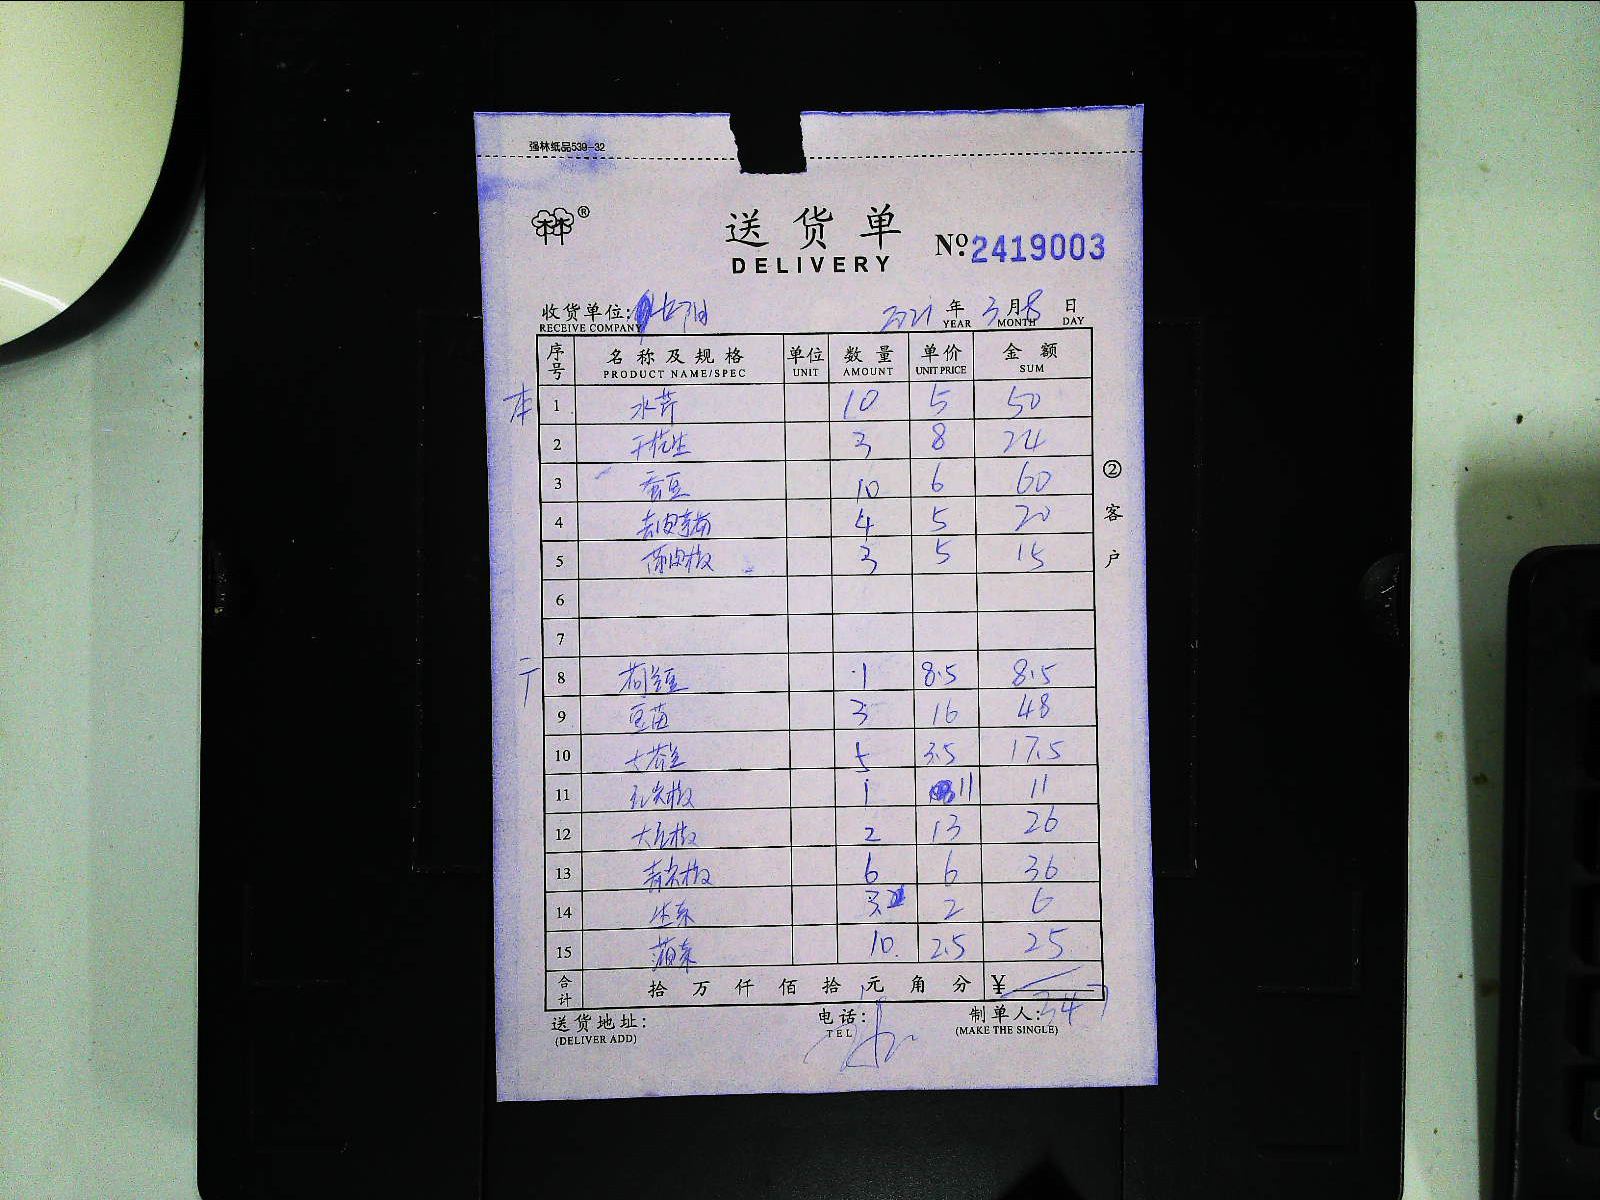 强林纸品539-32
®
送货单
DELIVERY
№:2419003
收货单位: 2021 年 3 月 8 日
RECEIVE COMPANY YEAR MONTH DAY
序号 名称及规格 单位 数量 单价 金额
PRODUCT NAME/SPEC UNIT AMOUNT UNIT PRICE SUM
本 1 水芹 10 5 50
2 干花生 3 8 24
3 蚕豆 10 6 60
4 去皮青菊 4 5 20
5 3 5 15
6
7
8 荷兰豆 1 8.5 8.5
9 豆苗 3 16 48
10 5 3.5 17.5
11 红尖椒 1 11 11
12 大红椒 2 13 26
13 青尖椒 6 6 36
14 生菜 3 2 6
15 蒲菜 10. 2.5 25
合计 拾 万 仟 佰 拾 元 角 分 ¥
347
送货地址: 电话: 制单人:
(DELIVER ADD) TEL (MAKE THE SINGLE)
② 客户